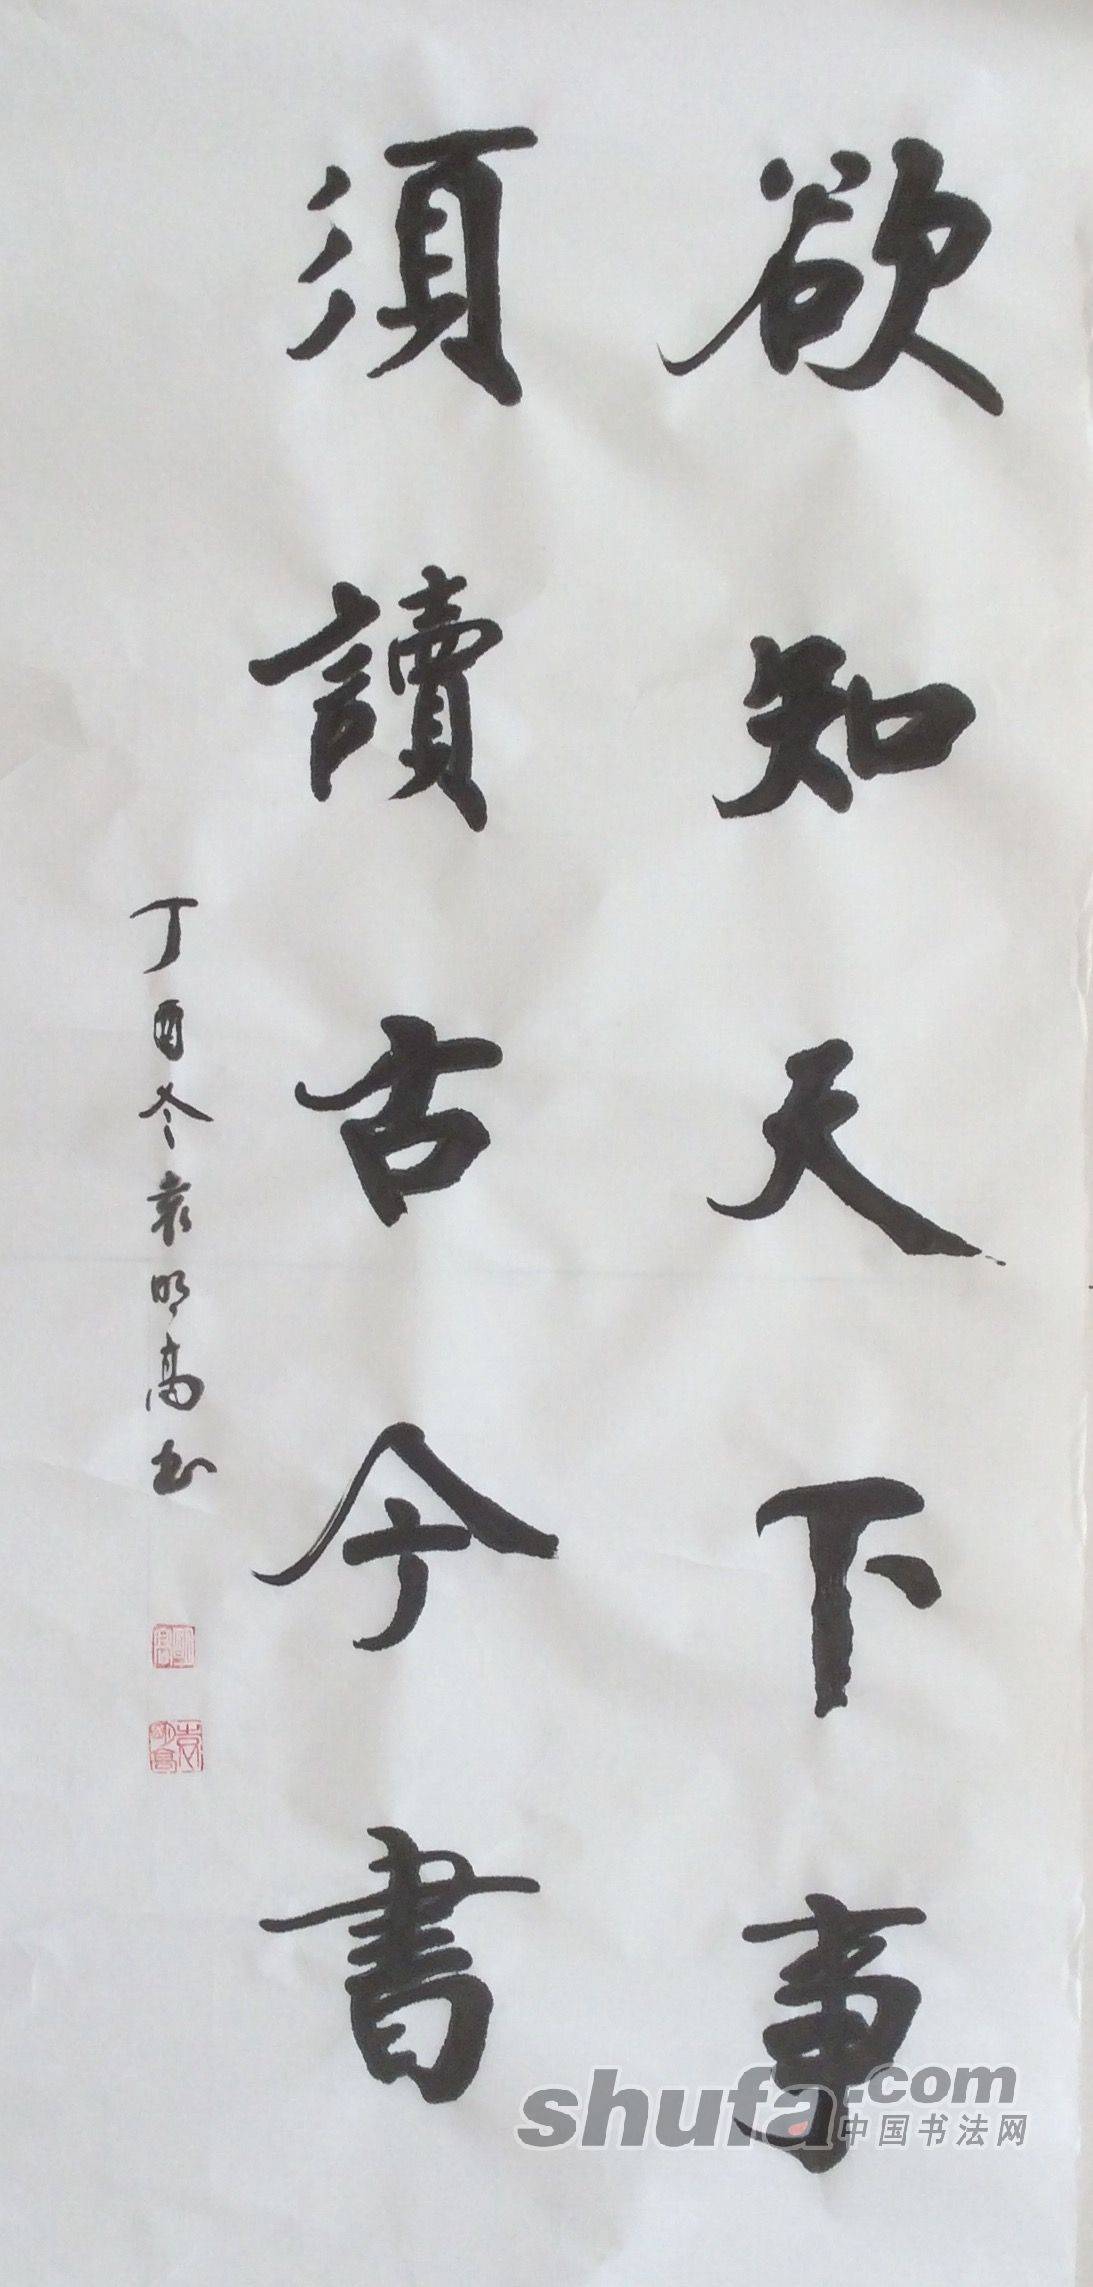 欲知天下事
須讀古今書
丁酉冬袁明高书
明高
袁明高
shufa.com
中国书法网